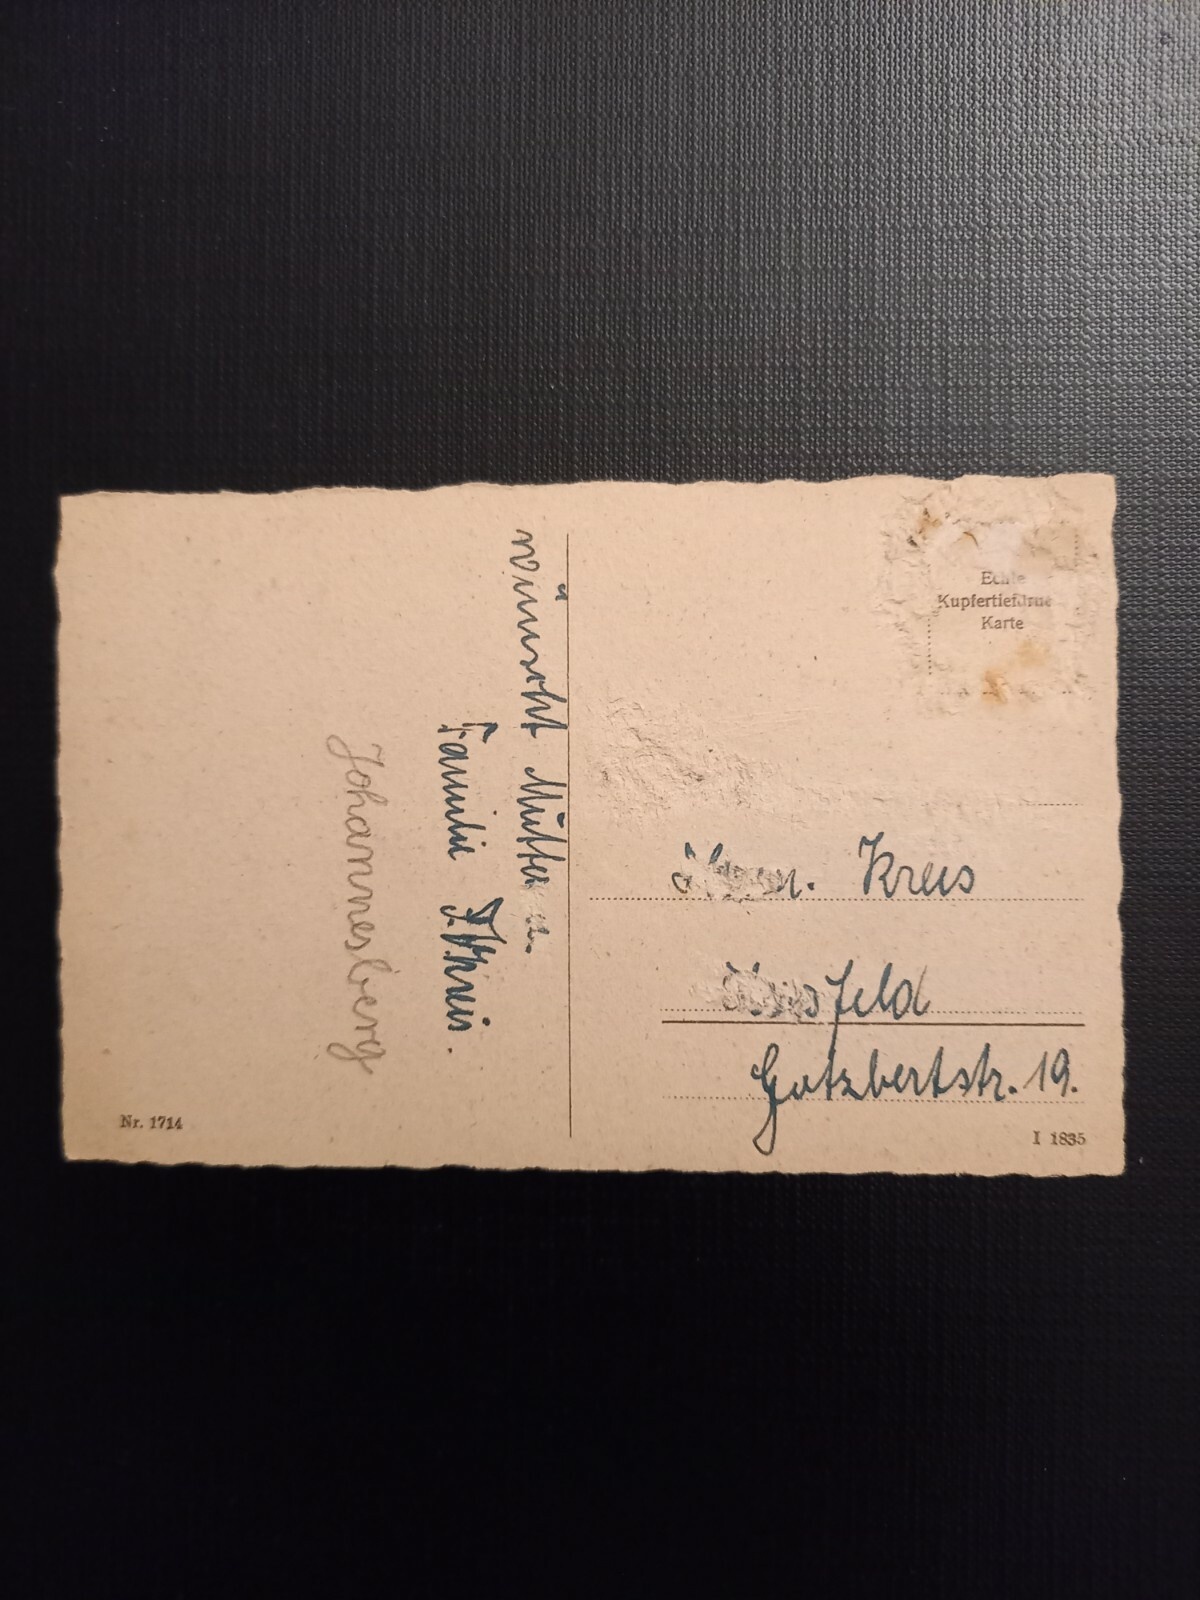 wünscht Mutter u.
Familie J. Kreis.
Johannesberg
Nr. 1714
Echte
Kupfertiefdruck
Karte
Kreis
Hersfeld
Gotzbertstr. 19.
I 1835